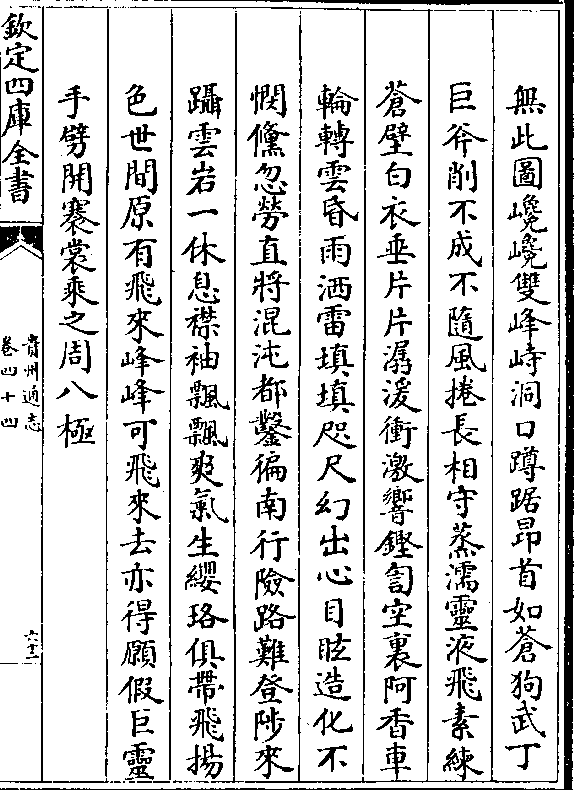 無此圖巉巉雙峰峙洞口蹲踞昂首如蒼狗武丁
巨斧削不成不隨風捲長相守蒸濡靈液飛素練
蒼壁白衣垂片片潺湲衝激響鏗訇空裏阿香車
輪轉雲昏雨洒雷填填咫尺幻出心目眩造化不
憫儵忽勞直將混沌都鑿徧南行險路難登陟來
躡雲岩一休息襟袖飄飄爽氣生纓珞俱帶飛揚
色世間原有飛來峰峰可飛來去亦得願假巨靈
手劈開褰裳乘之周八極
欽定四庫全書
貴州通志
卷四十四